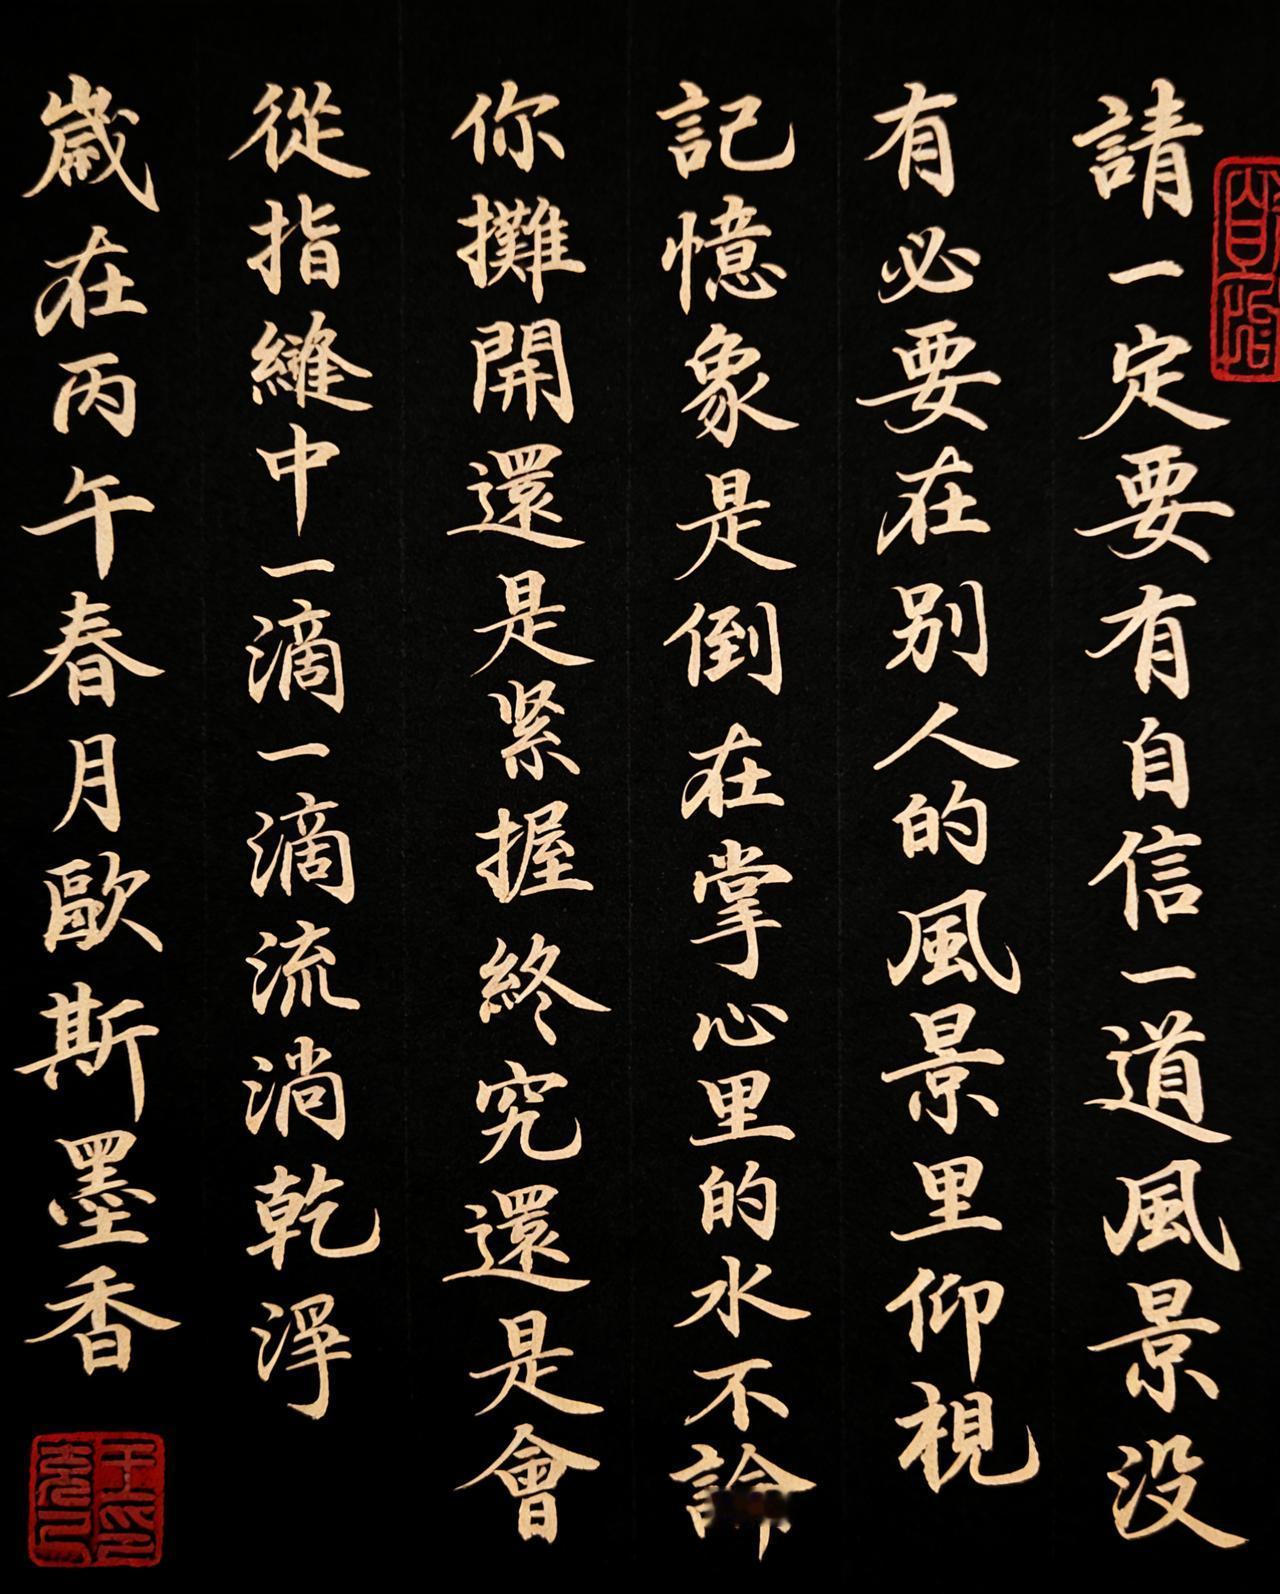 請一定要有自信一道風景没
有必要在别人的風景里仰視
記憶象是倒在掌心里的水不論
你攤開還是紧握終究還是會
從指縫中一滴一滴流淌乾淨
歲在丙午春月歐斯墨香